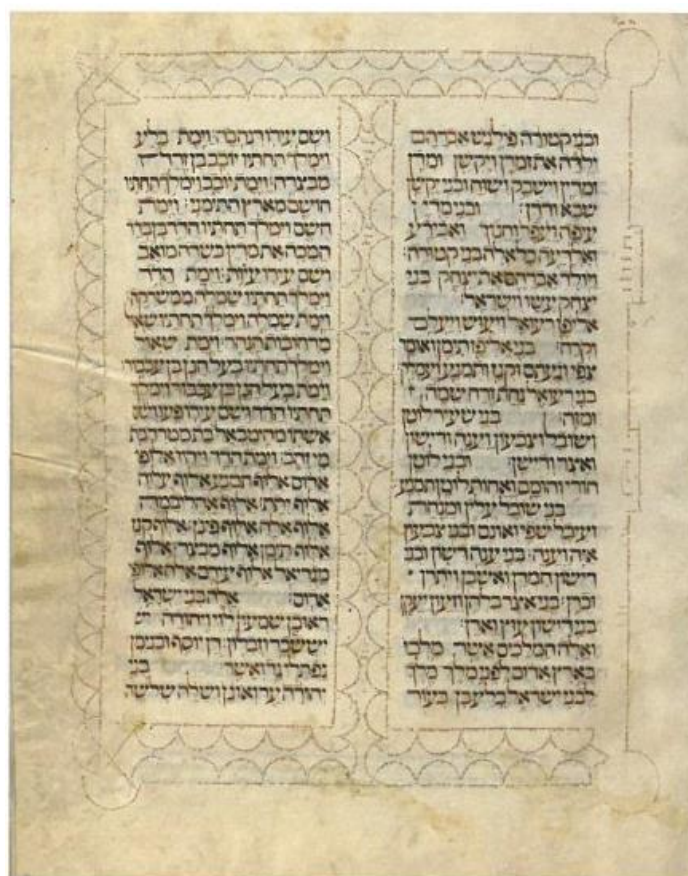 ובני קטורה פילגש אברהם
ילדה את זמרן ויקשן ומדן
ומדין וישבק ושוח ובני יקשן
שבא ודדן׃ ובני מדין
עיפה ועפר וחנוך ואבידע
ואלדעה כל אלה בני קטורה׃
ויולד אברהם את יצחק בני
יצחק עשו וישראל׃
אליפז רעואל ויעוש ויעלם
וקרח׃ בני אליפז תימן ואומר
צפי וגעתם קנז ותמנע ועמלק׃
בני רעואל נחת זרח שמה
ומזה׃ בני שעיר לוטן
ושובל וצבעון וענה ודישון
ואצר ודישן׃ ובני לוטן
חורי והומם ואחות לוטן תמנע׃
בני שובל עלין ומנחת
ועיבל שפי ואונם ובני צבעון
איה וענה׃ בני ענה דישון ובני
דישון חמרן ואשבן ויתרן
וכרן׃ בני אצר בלהן וזעון יעקן
בני דישון עוץ וארן׃
ואלה המלכים אשר מלכו
בארץ אדום לפני מלך מלך
לבני ישראל בלע בן בעור
ושם עירו דנהבה׃ וימת בלע
וימלך תחתיו יובב בן זרח
מבצרה׃ וימת יובב וימלך תחתיו
חושם מארץ התימני׃ וימת
חשם וימלך תחתיו הדד בן בדד
המכה את מדין בשדה מואב
ושם עירו עוית׃ וימת הדד
וימלך תחתיו שמלה ממשרקה׃
וימת שמלה וימלך תחתיו שאול
מרחבות הנהר׃ וימת שאול
וימלך תחתיו בעל חנן בן עכבור׃
וימת בעל חנן וימלך
תחתיו הדד ושם עירו פעי ושם
אשתו מהיטבאל בת מטרד בת
מי זהב׃ וימת הדד ויהיו אלופי
אדום אלוף תמנע אלוף עליה
אלוף יתת׃ אלוף אהליבמה
אלוף אלה אלוף פינן׃ אלוף קנז
אלוף תימן אלוף מבצר׃ אלוף
מגדיאל אלוף עירם אלה אלופי
אדום׃ אלה בני ישראל
ראובן שמעון לוי ויהודה
יששכר וזבלון׃ דן יוסף ובנימן
נפתלי גד ואשר׃ בני
יהודה ער ואונן ושלה שלשה